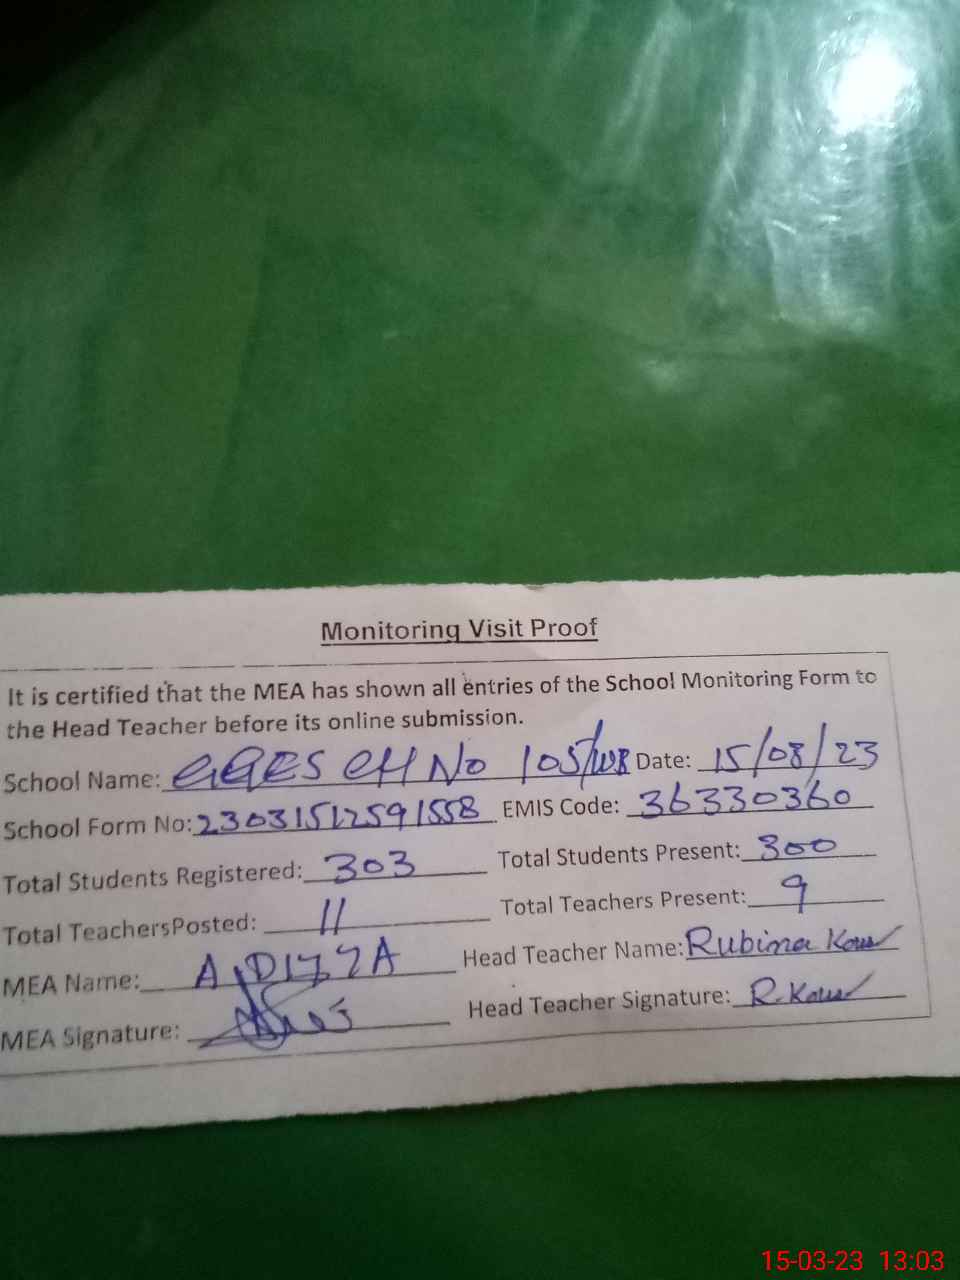 Monitoring Visit Proof
It is certified that the MEA has shown all entries of the School Monitoring Form to
the Head Teacher before its online submission.
School Name: GGES CH No 105/WB Date: 15/03/23
School Form No: 23031512591558 EMIS Code: 36330360
Total Students Registered: 303 Total Students Present: 300
Total TeachersPosted: 11 Total Teachers Present: 9
MEA Name: Head Teacher Name: Rubina
MEA Signature: Head Teacher Signature: R.
15-03-23 13:03